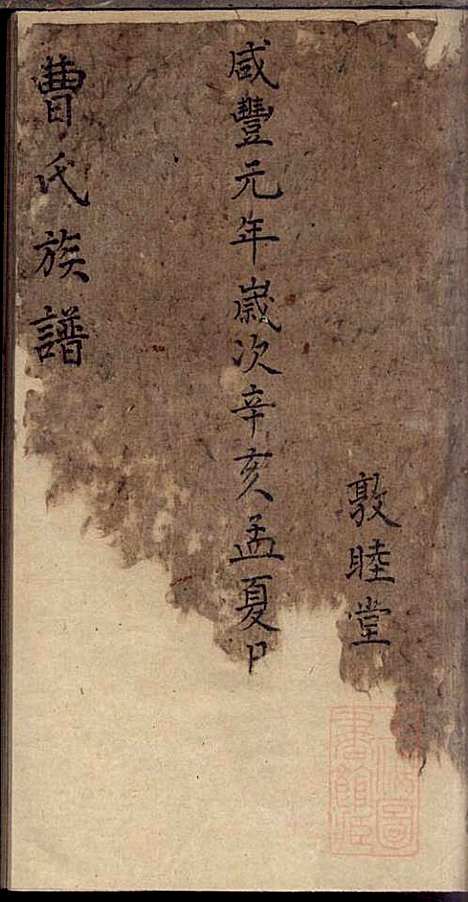 敦睦堂
咸豐元年歲次辛亥孟夏
曹氏族譜